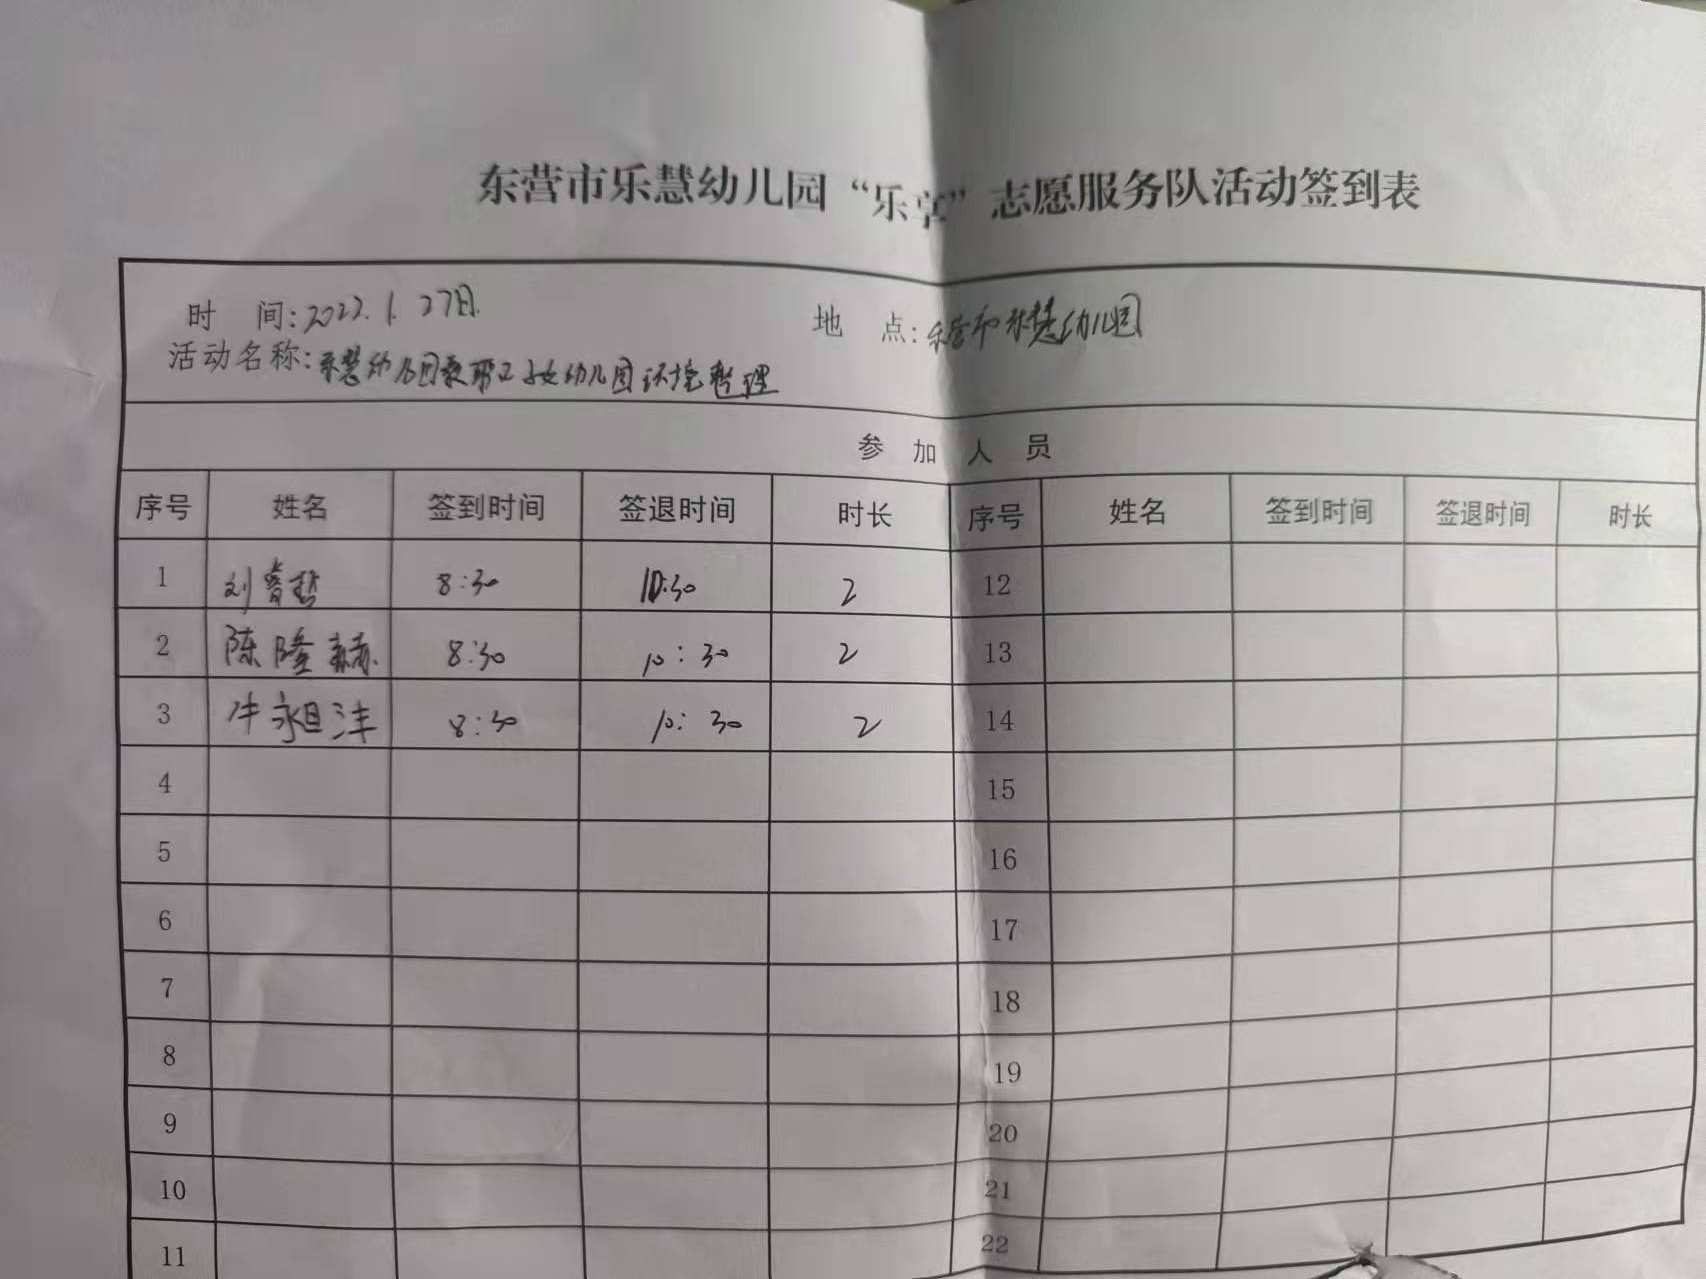 东营市乐慧幼儿园“乐享”志愿服务队活动签到表
时 间:2022.1.27日 地 点:东营市乐慧幼儿园
活动名称:乐慧幼儿园教职工子女幼儿园环境整理
参 加 人 员
序号 姓名 签到时间 签退时间 时长 序号 姓名 签到时间 签退时间 时长
1 刘睿哲 8:30 10:30 2 12
2 陈隆赫 8:30 10:30 2 13
3 牛 沣 8:30 10:30 2 14
4 15
5 16
6 17
7 18
8 19
9 20
10 21
11 22